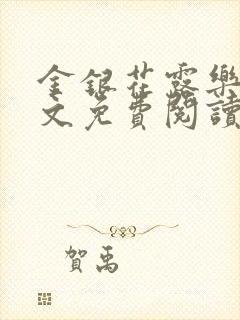 金銀花露樂
文免費閱讀
賀禹